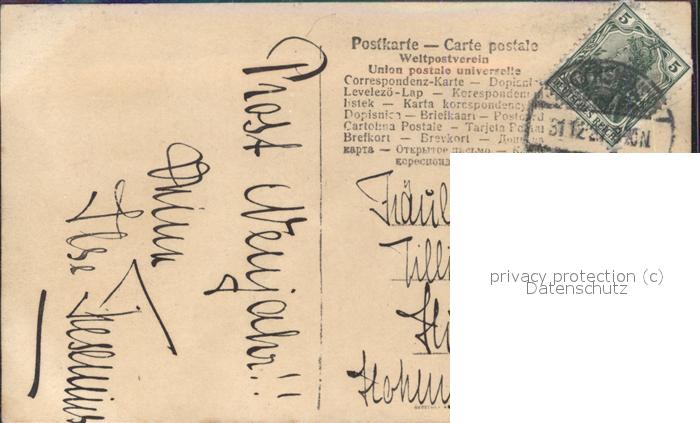 Postkarte — Carte postale
Weltpostverein
Union postale universelle
Correspondenz-Karte — Dopisni
Levelező-Lap — Korespondenc
listek — Karta korespondency
Dopisnica — Briefkaart — Postcard
Cartolina Postale — Tarjeta Postal
Brefkort — Brevkort — 
карта — Открытое письмо —
кореспонд
5
5
31.12
Prost Neujahr!!
Deine
Ilse
Fräul
Tilli
Hohen
privacy protection (c)
Datenschutz